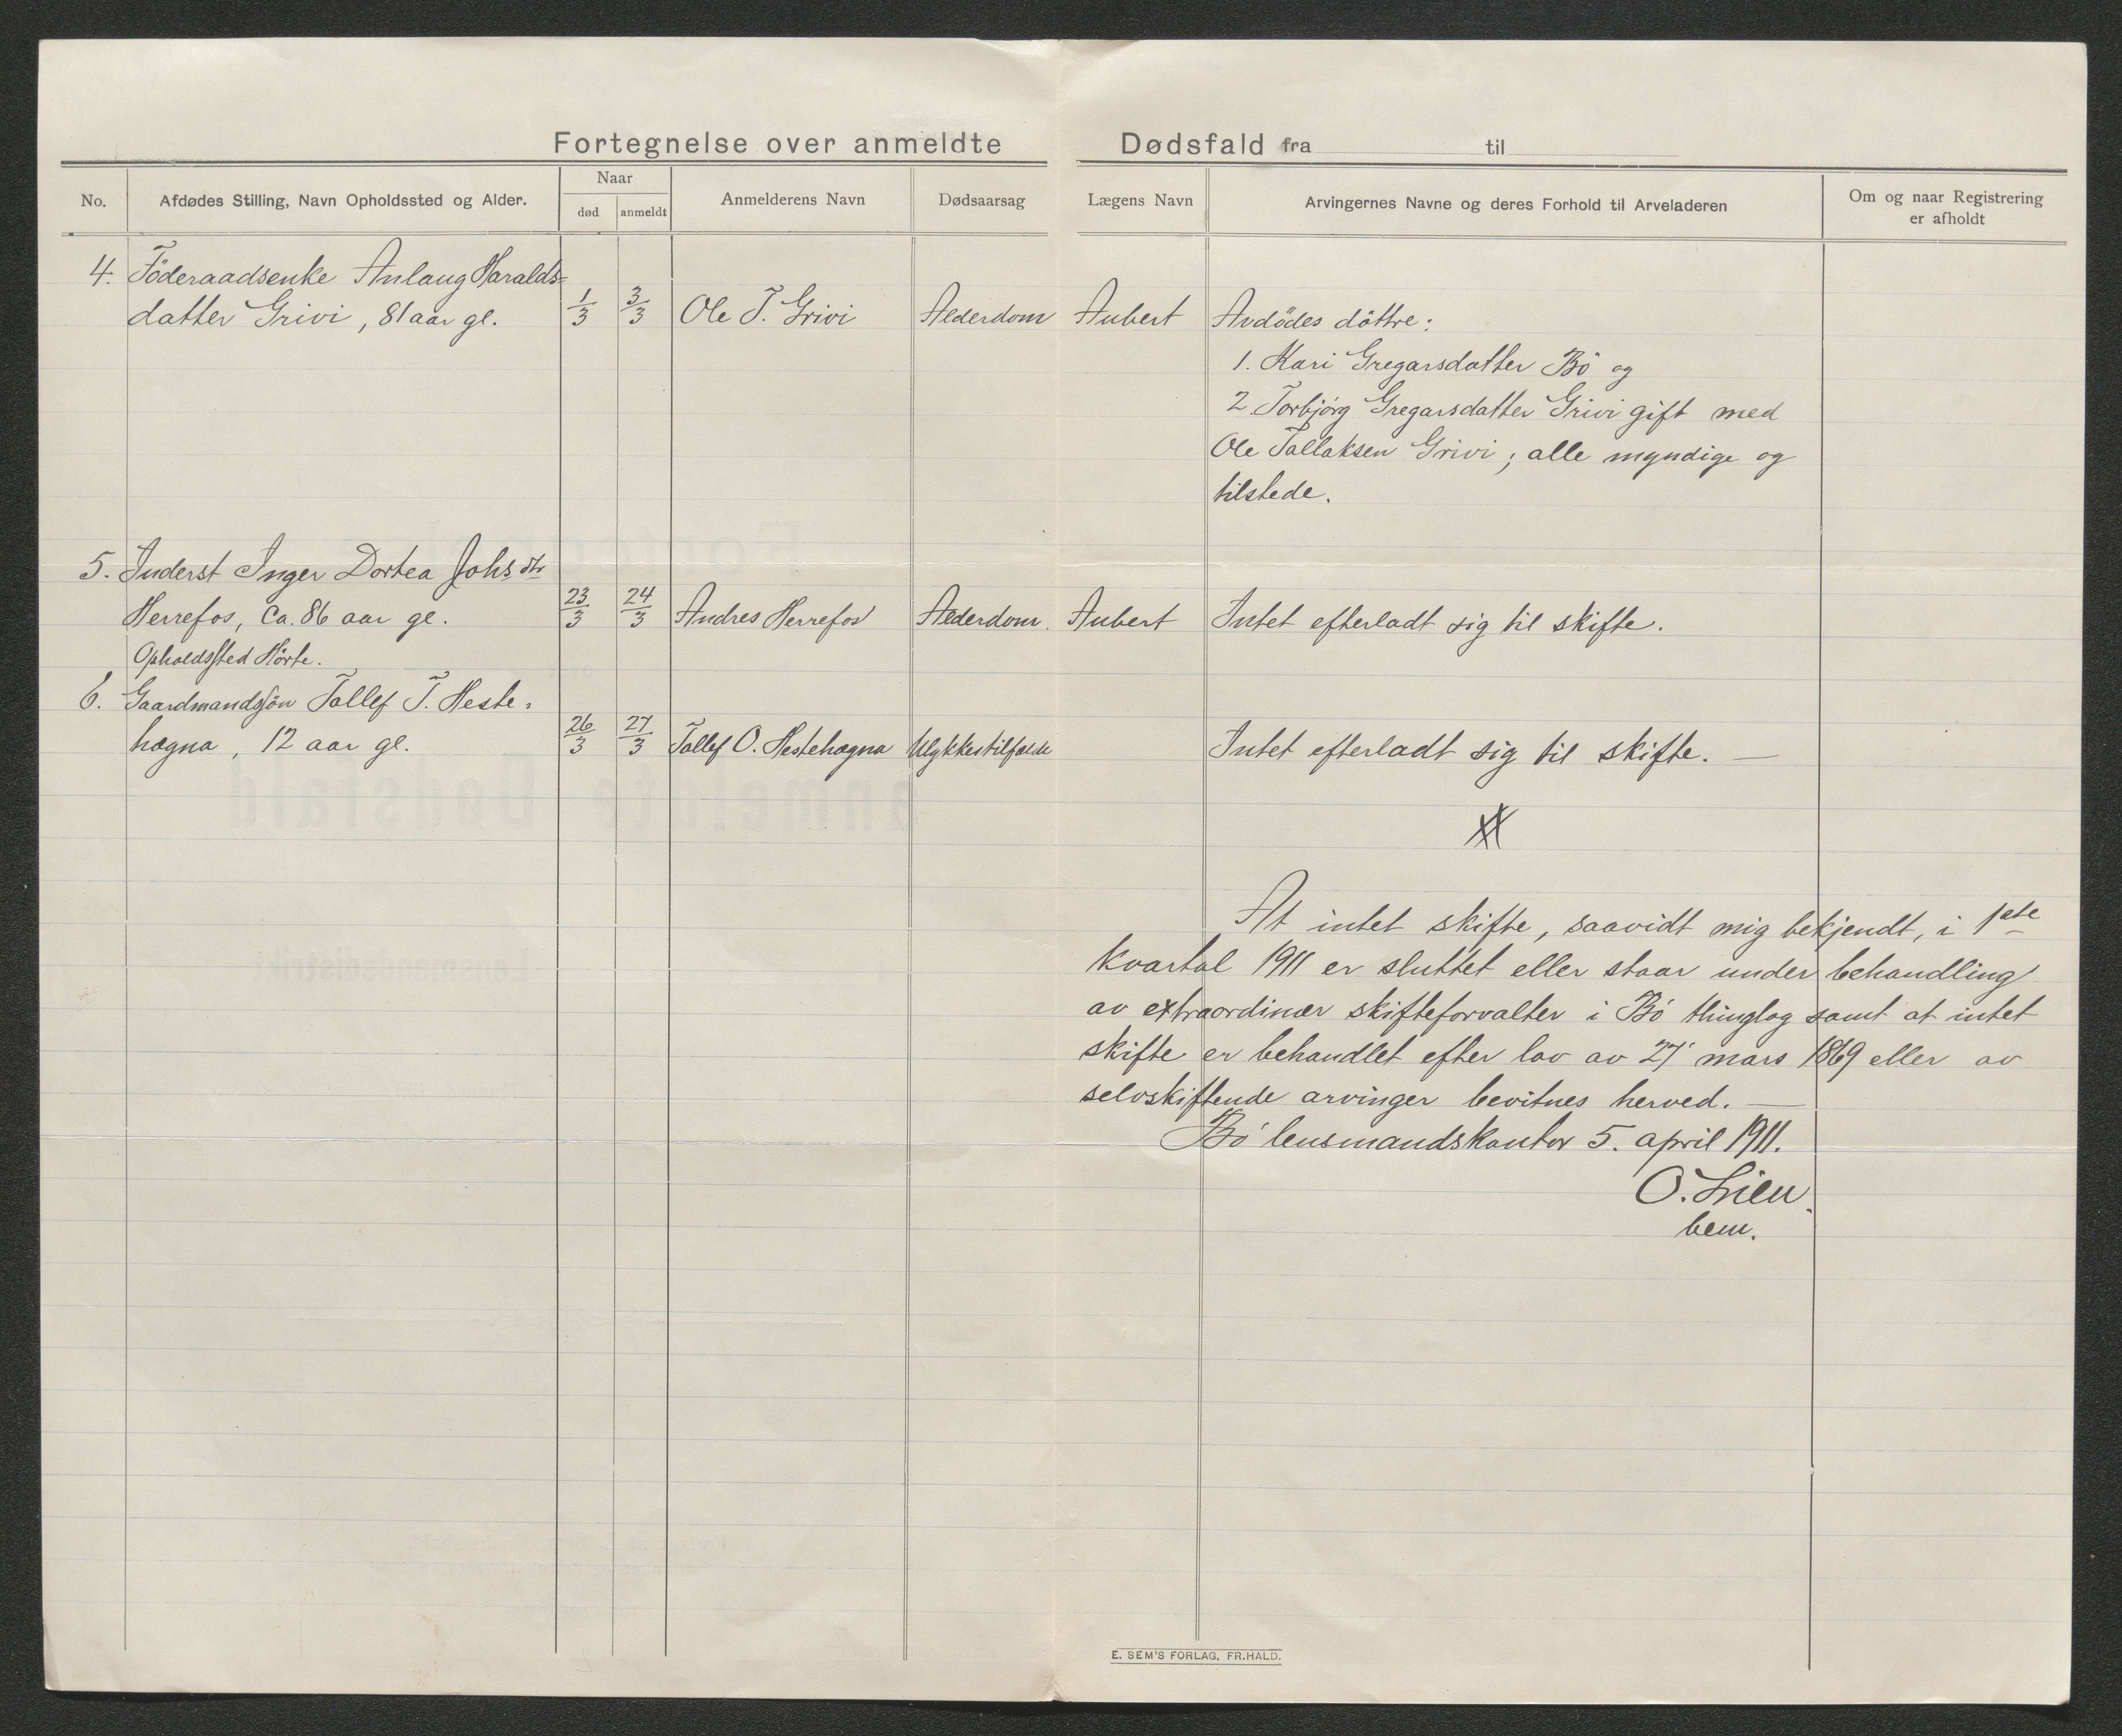 Fortegnelse over anmeldte Dødsfald fra til
No.
Afdødes Stilling, Navn Opholdssted og Alder.
Naar
død
anmeldt
Anmelderens Navn
Dødsaarsag
Lægens Navn
Arvingernes Navne og deres Forhold til Arveladeren
Om og naar Registrering
er afholdt
4. Föderaadsenke Anlaug Haralds-
datter Grivi, 81 aar gl. 1/3 3/3 Ole T. Grivi Alderdom Aubert Avdödes döttre:
1. Kari Gregarsdatter Bö og
2. Torbjörg Gregarsdatter Grivi gift med
Ole Tallaksen Grivi; alle myndige og
tilstede.
5. Inderst Inger Dortea Johs dtr
Herrefos, ca. 86 aar gl. 23/3 24/3 Andres Herrefos Alderdom. Aubert Intet efterladt sig til skifte.
Opholdssted Hörte.
6. Gaardmandssön Tallef T. Heste-
hagna, 12 aar gl. 26/3 27/3 Tallef O. Hestehagna Ulykkestilfælde Intet efterladt sig til skifte. —
At intet skifte, saavidt mig bekjendt, i 1ste
kvartal 1911 er sluttet eller staar under behandling
av extraordinær skifteforvalter i Bö thinglag samt at intet
skifte er behandlet efter lov av 27 mars 1869 eller av
selvskiftende arvinger bevitnes herved. —
Bö lensmandskontor 5. april 1911.
O. Lien
bem.
E. SEM'S FORLAG, FR.HALD.